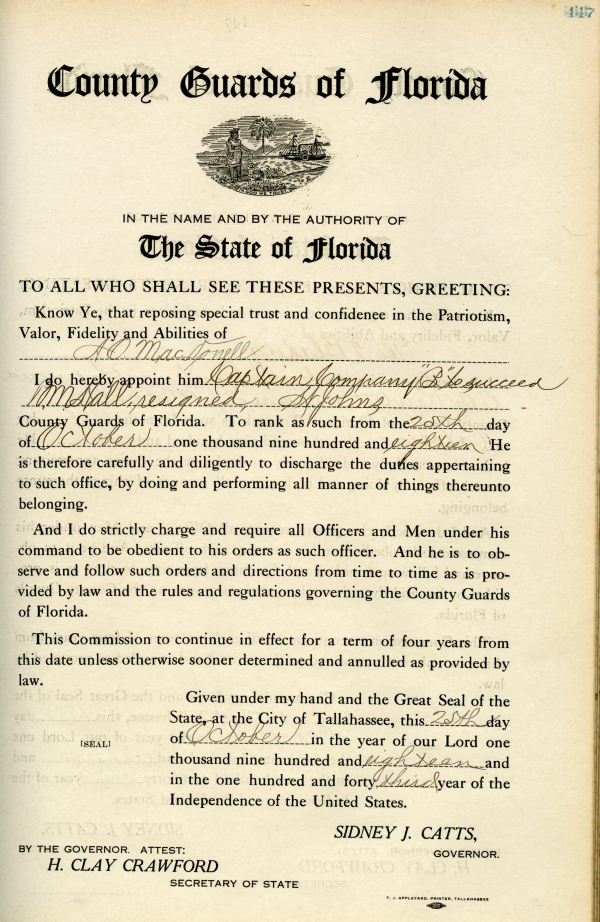 447
County Guards of Florida
IN THE NAME AND BY THE AUTHORITY OF
The State of Florida
TO ALL WHO SHALL SEE THESE PRESENTS, GREETING:
Know Ye, that reposing special trust and confidence in the Patriotism,
Valor, Fidelity and Abilities of
A. O. MacDonell
I do hereby appoint him Captain, Company "B" to succeed
Hall, resigned, St Johns
County Guards of Florida. To rank as such from the 25th day
of October one thousand nine hundred and eighteen He
is therefore carefully and diligently to discharge the duties appertaining
to such office, by doing and performing all manner of things thereunto
belonging.
And I do strictly charge and require all Officers and Men under his
command to be obedient to his orders as such officer. And he is to ob-
serve and follow such orders and directions from time to time as is pro-
vided by law and the rules and regulations governing the County Guards
of Florida.
This Commission to continue in effect for a term of four years from
this date unless otherwise sooner determined and annulled as provided by
law.
Given under my hand and the Great Seal of the
State, at the City of Tallahassee, this 25th day
[SEAL] of October in the year of our Lord one
thousand nine hundred and eighteen and
in the one hundred and forty third year of the
Independence of the United States.
SIDNEY J. CATTS,
GOVERNOR.
BY THE GOVERNOR. ATTEST:
H. CLAY CRAWFORD
SECRETARY OF STATE
T. J. APPLEYARD, PRINTER, TALLAHASSEE